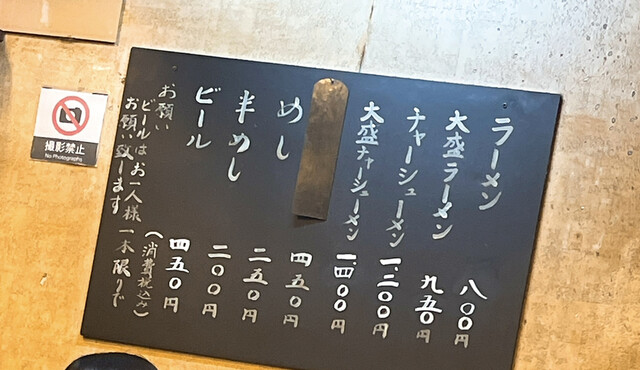 ラーメン 八〇〇円
大盛ラーメン 九五〇円
チャーシューメン
大盛チャーシューメン 一、四〇〇円
四五〇円
めし 二五〇円
半めし 二〇〇円
ビール 四五〇円
(消費税込み)
お願い
ビールはお一人様一本限りで
お願い致します
撮影禁止
No Photographs